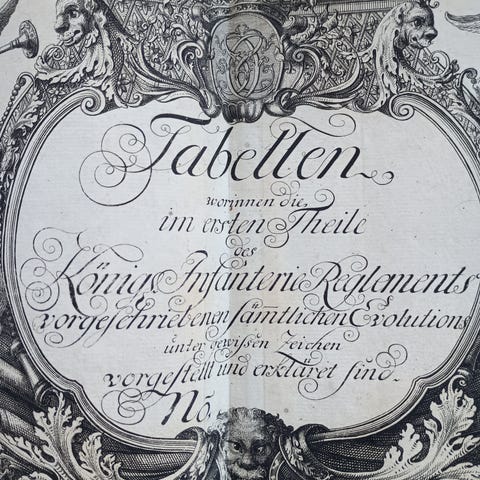 Tabellen
worinnen die
im ersten Theile
des
Königs Infanterie Reglements
vorgeschriebenen sämtlichen Evolutions
unter gewissen Zeichen
vorgestellt und erkläret sind.
No.